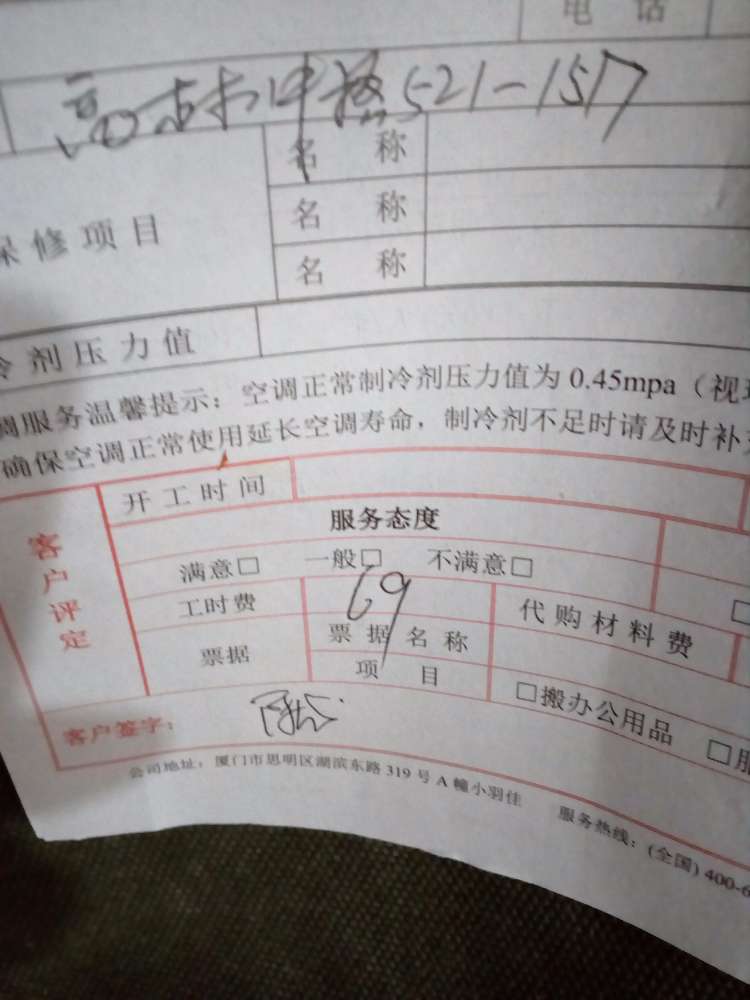 电 话
521-1517
名 称
保修项目
名 称
名 称
冷剂压力值
调服务温馨提示：空调正常制冷剂压力值为 0.45mpa（视
确保空调正常使用延长空调寿命，制冷剂不足时请及时补
客户评定
开工时间
服务态度
满意□ 一般□ 不满意□
工时费 69 代购材料费
票据 票据名称
项 目 □搬办公用品 □服
客户签字：
公司地址：厦门市思明区湖滨东路 319 号 A 幢小羽佳 服务热线：(全国) 400-6